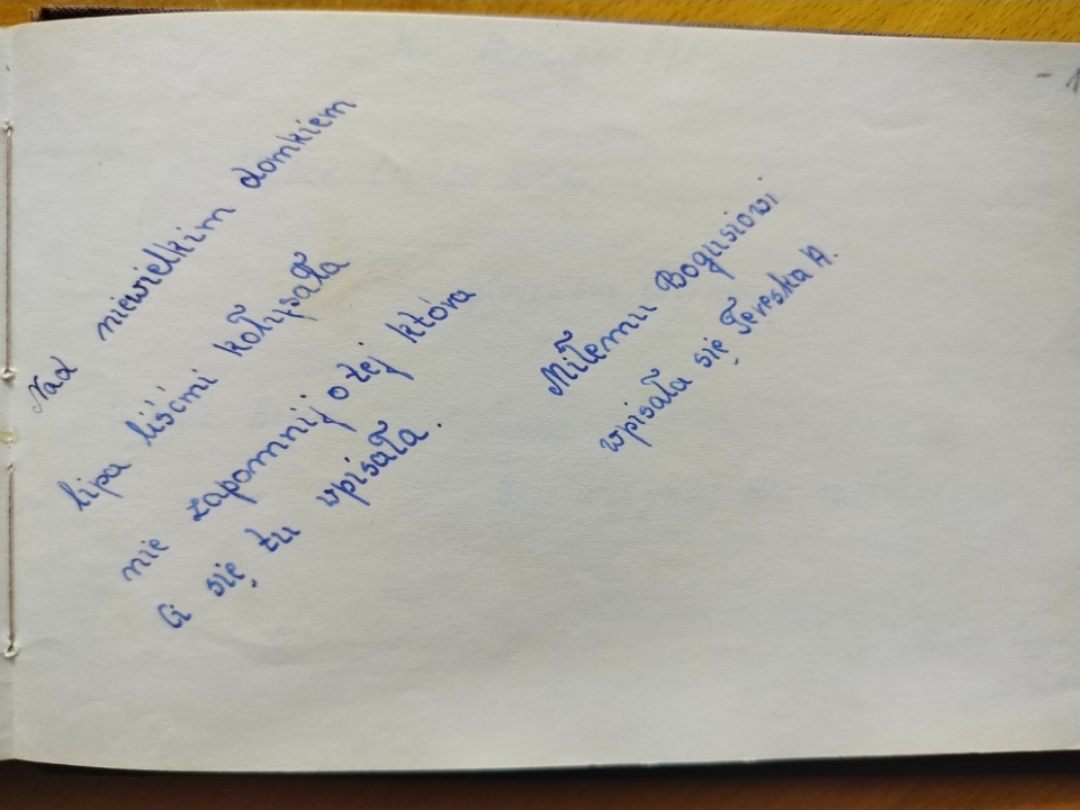 Nad niewielkim domkiem
lipa liśćmi kołysała
nie zapomnij o tej która
Ci się tu wpisała.
Miłemu Bogusiowi
wpisała się Tereska A.